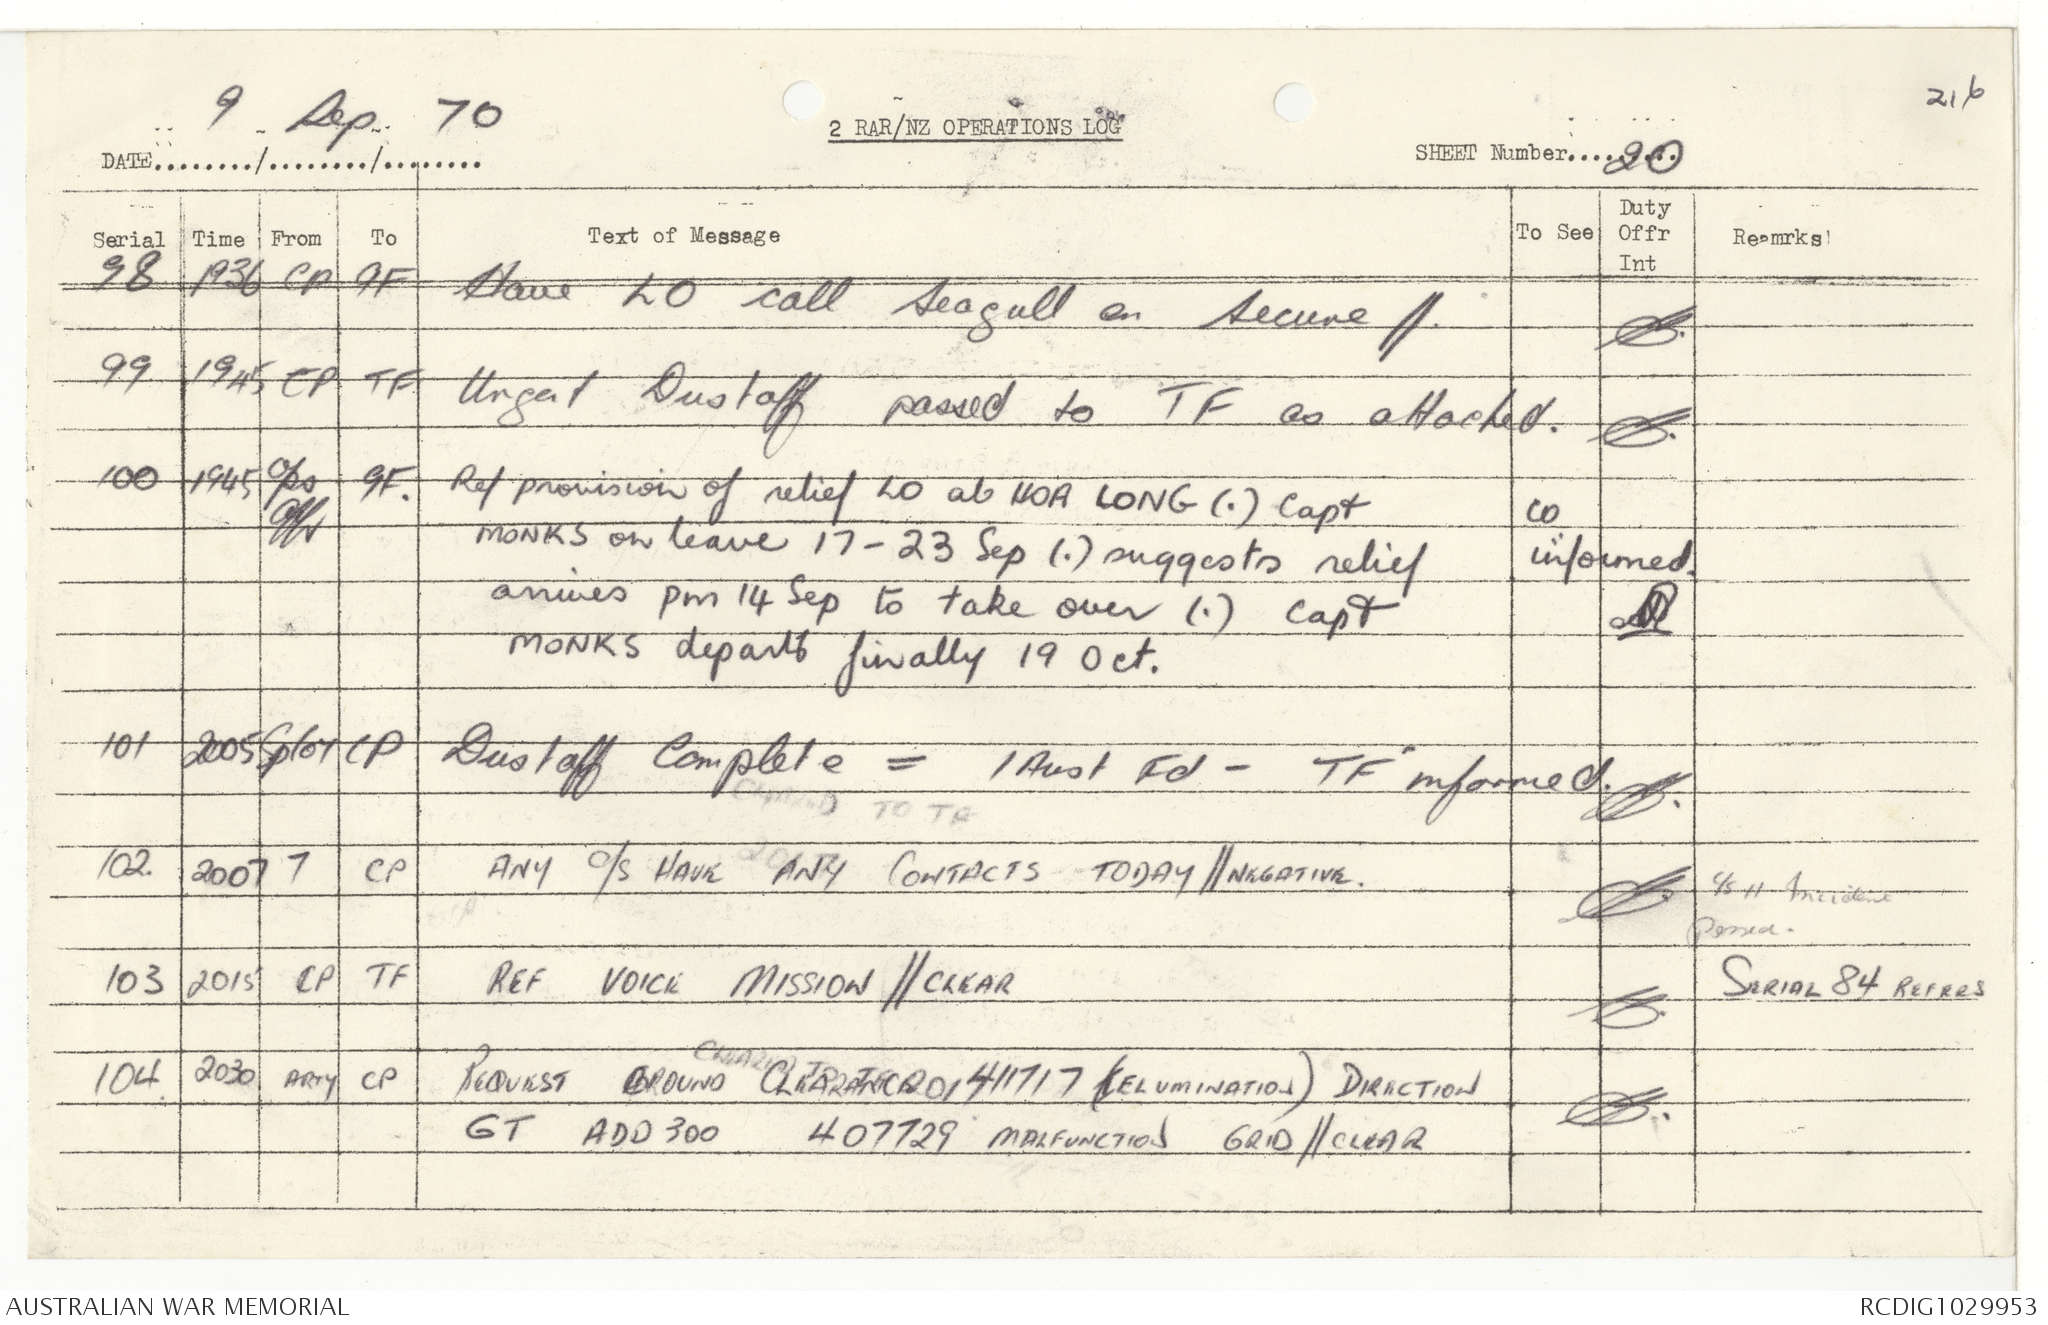 216
9 Sep 70
2 RAR/NZ OPERATIONS LOG
DATE........./......../........
SHEET Number.... 20
Serial Time From To Text of Message To See Duty Offr Int Reamrks
98 1936 CP 9F Have LO call Seagull on secure //.
99 1945 CP TF Urgent Dustoff passed to TF as attached.
100 1945 Ops Offr 9F. Ref provision of relief LO at HOA LONG (.) Capt
MONKS on leave 17-23 Sep (.) suggests relief
arrives pm 14 Sep to take over (.) Capt
MONKS departs finally 19 Oct.
CO
informed.
101 2005 CP Dustoff Complete = 1 Aust Fd - TF informed.
TO TF
102. 2007 7 CP ANY C/S HAVE ANY CONTACTS TODAY // NEGATIVE.
C/S 11 Incident
Passed.
103 2015 CP TF REF VOICE MISSION // CLEAR SERIAL 84 REFERS
104. 2030 ARTY CP REQUEST GROUND CLEARANCE 411717 (ELUMINATION) DIRECTION
GT ADD 300 407729 MALFUNCTION GRID // CLEAR
AUSTRALIAN WAR MEMORIAL
RCDIG1029953